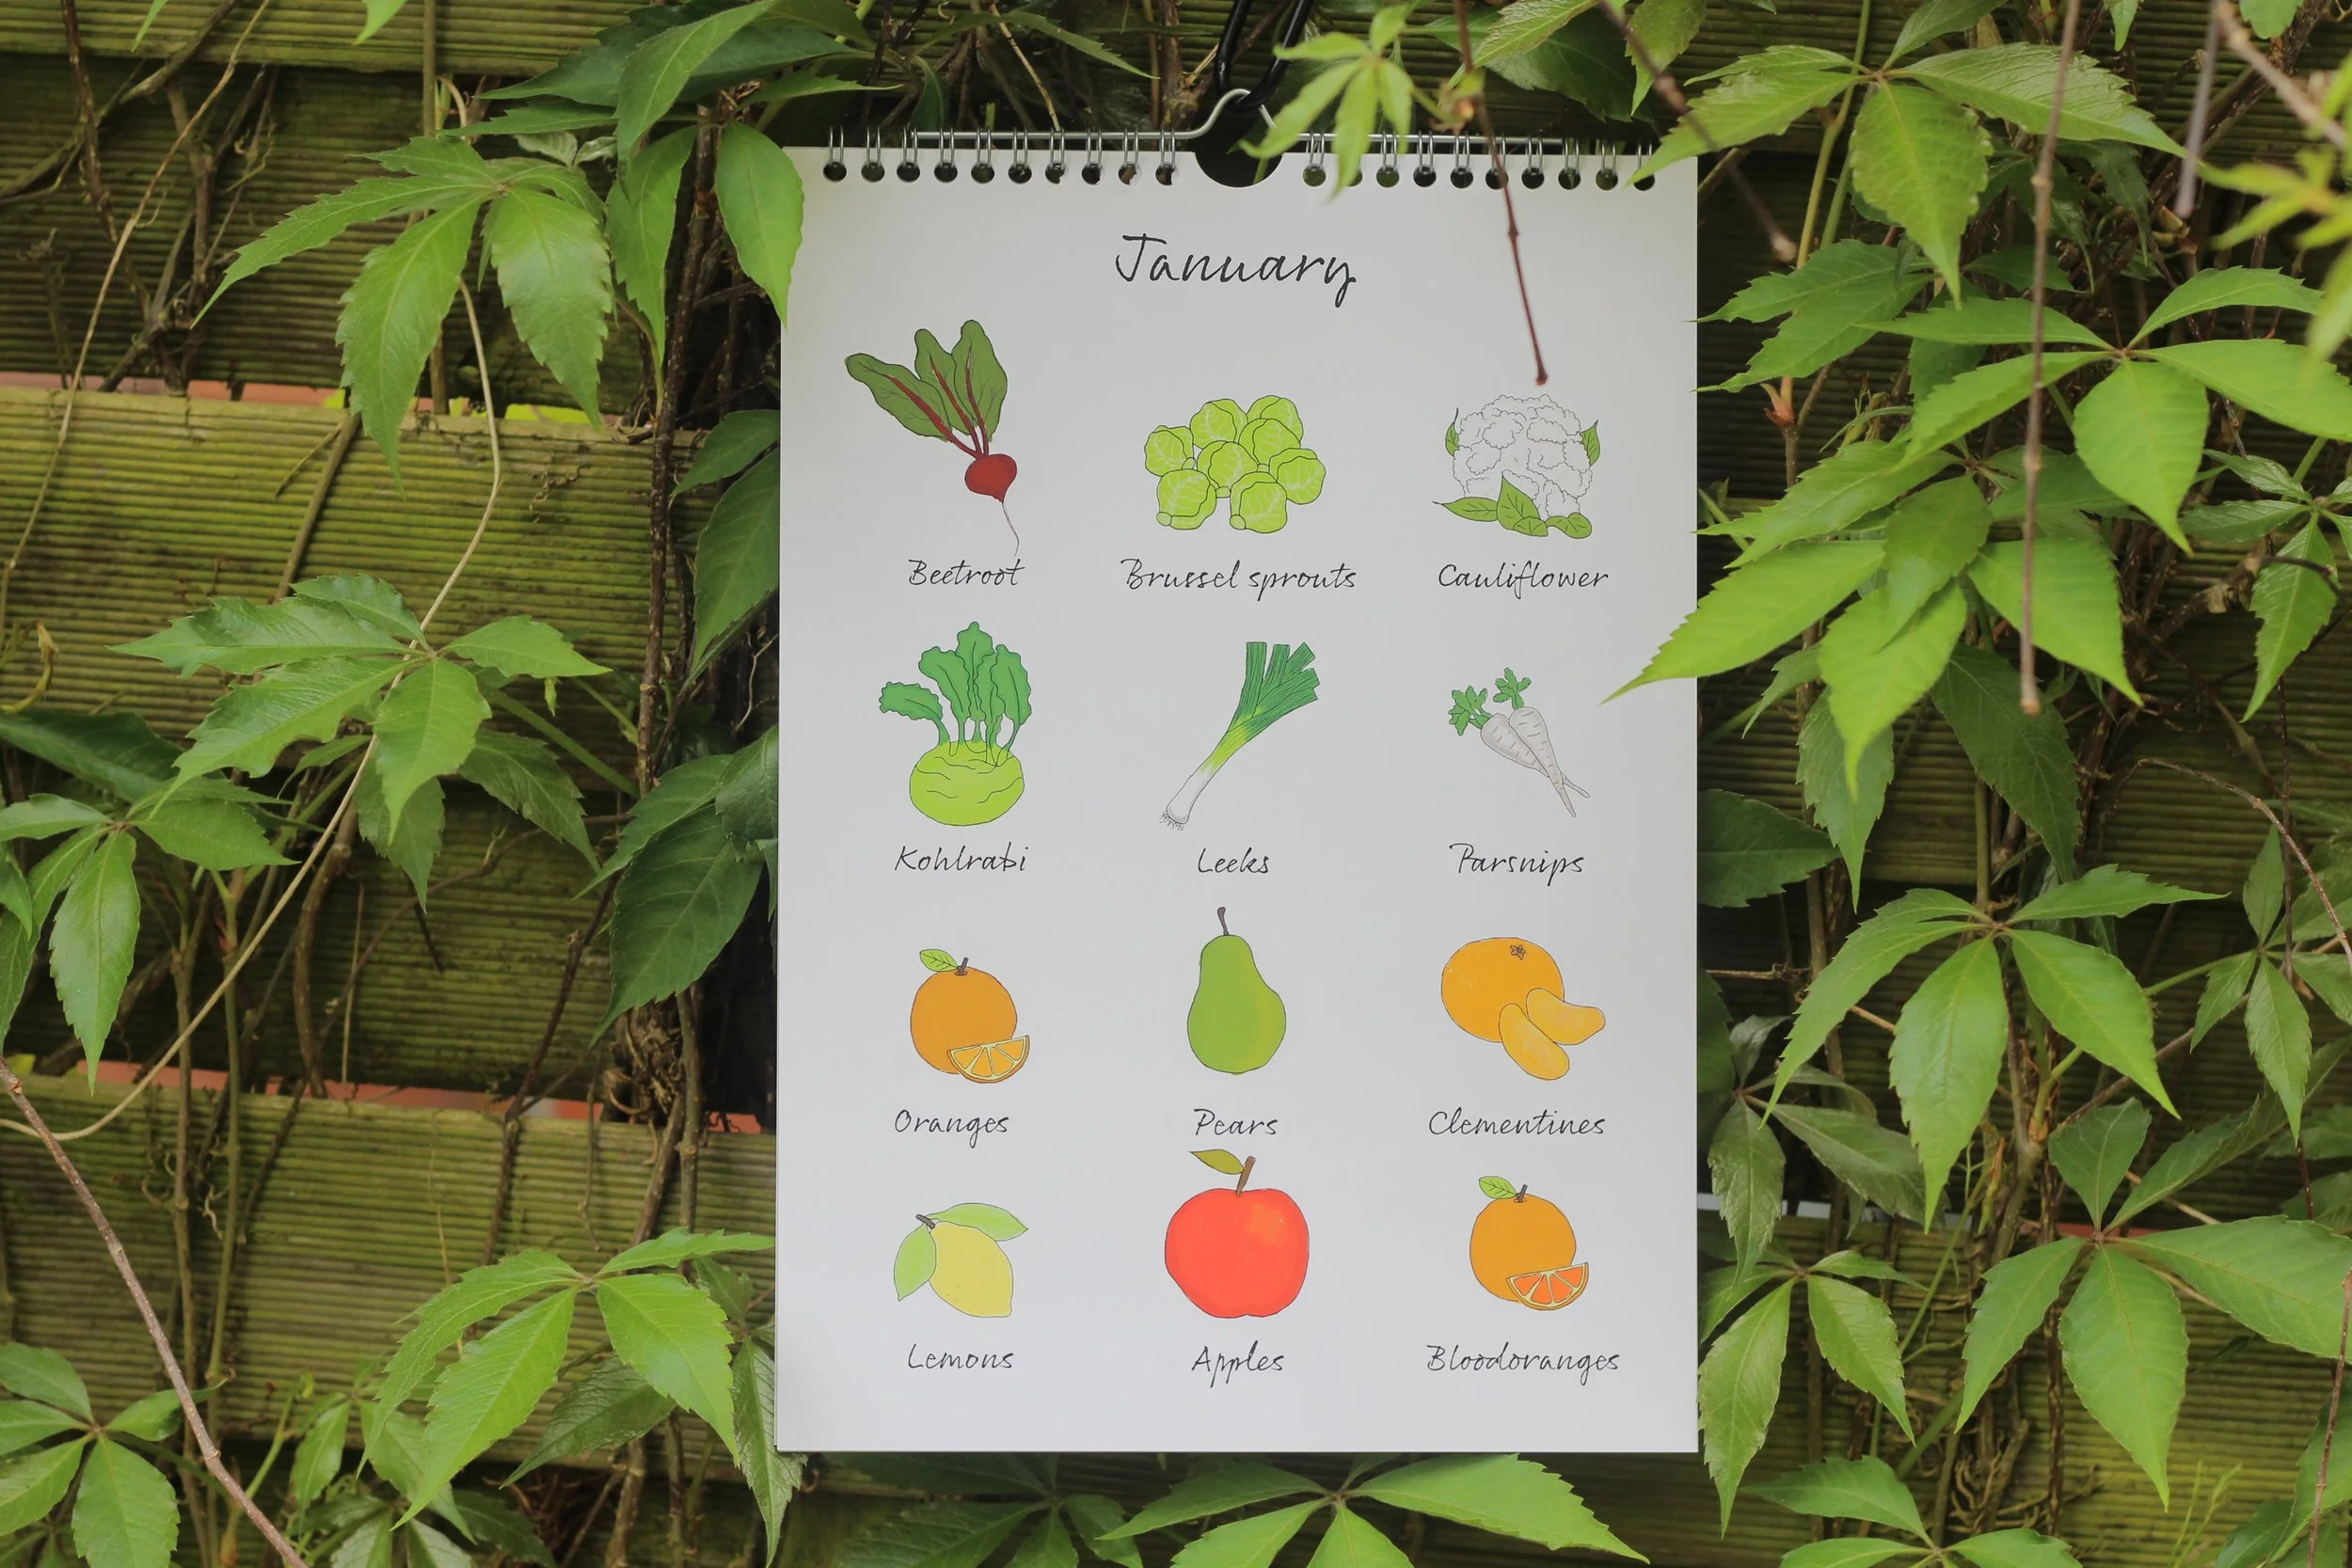 January
Beetroot Brussel sprouts Cauliflower
Kohlrabi Leeks Parsnips
Oranges Pears Clementines
Lemons Apples Bloodoranges